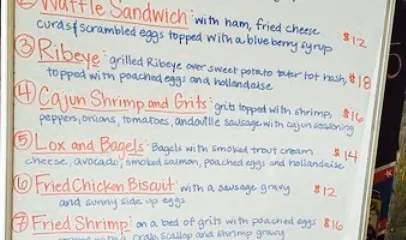 ② Waffle Sandwich: with ham, fried cheese
curds & scrambled eggs topped with a blueberry syrup $12
③ Ribeye: grilled Ribeye over sweet potato tater tot hash, $18
topped with poached eggs and hollandaise
④ Cajun Shrimp and Grits: grits topped with shrimp, $16
peppers, onions, tomatoes, andouille sausage with cajun seasoning
⑤ Lox and Bagels: Bagels with smoked trout cream $14
cheese, avocado, smoked salmon, poached eggs and hollandaise
⑥ Fried Chicken Biscuit: with a sausage gravy $12
and sunny side up eggs
⑦ Fried Shrimp: on a bed of grits with poached eggs $16
topped with a crab, scallop and shrimp gravy